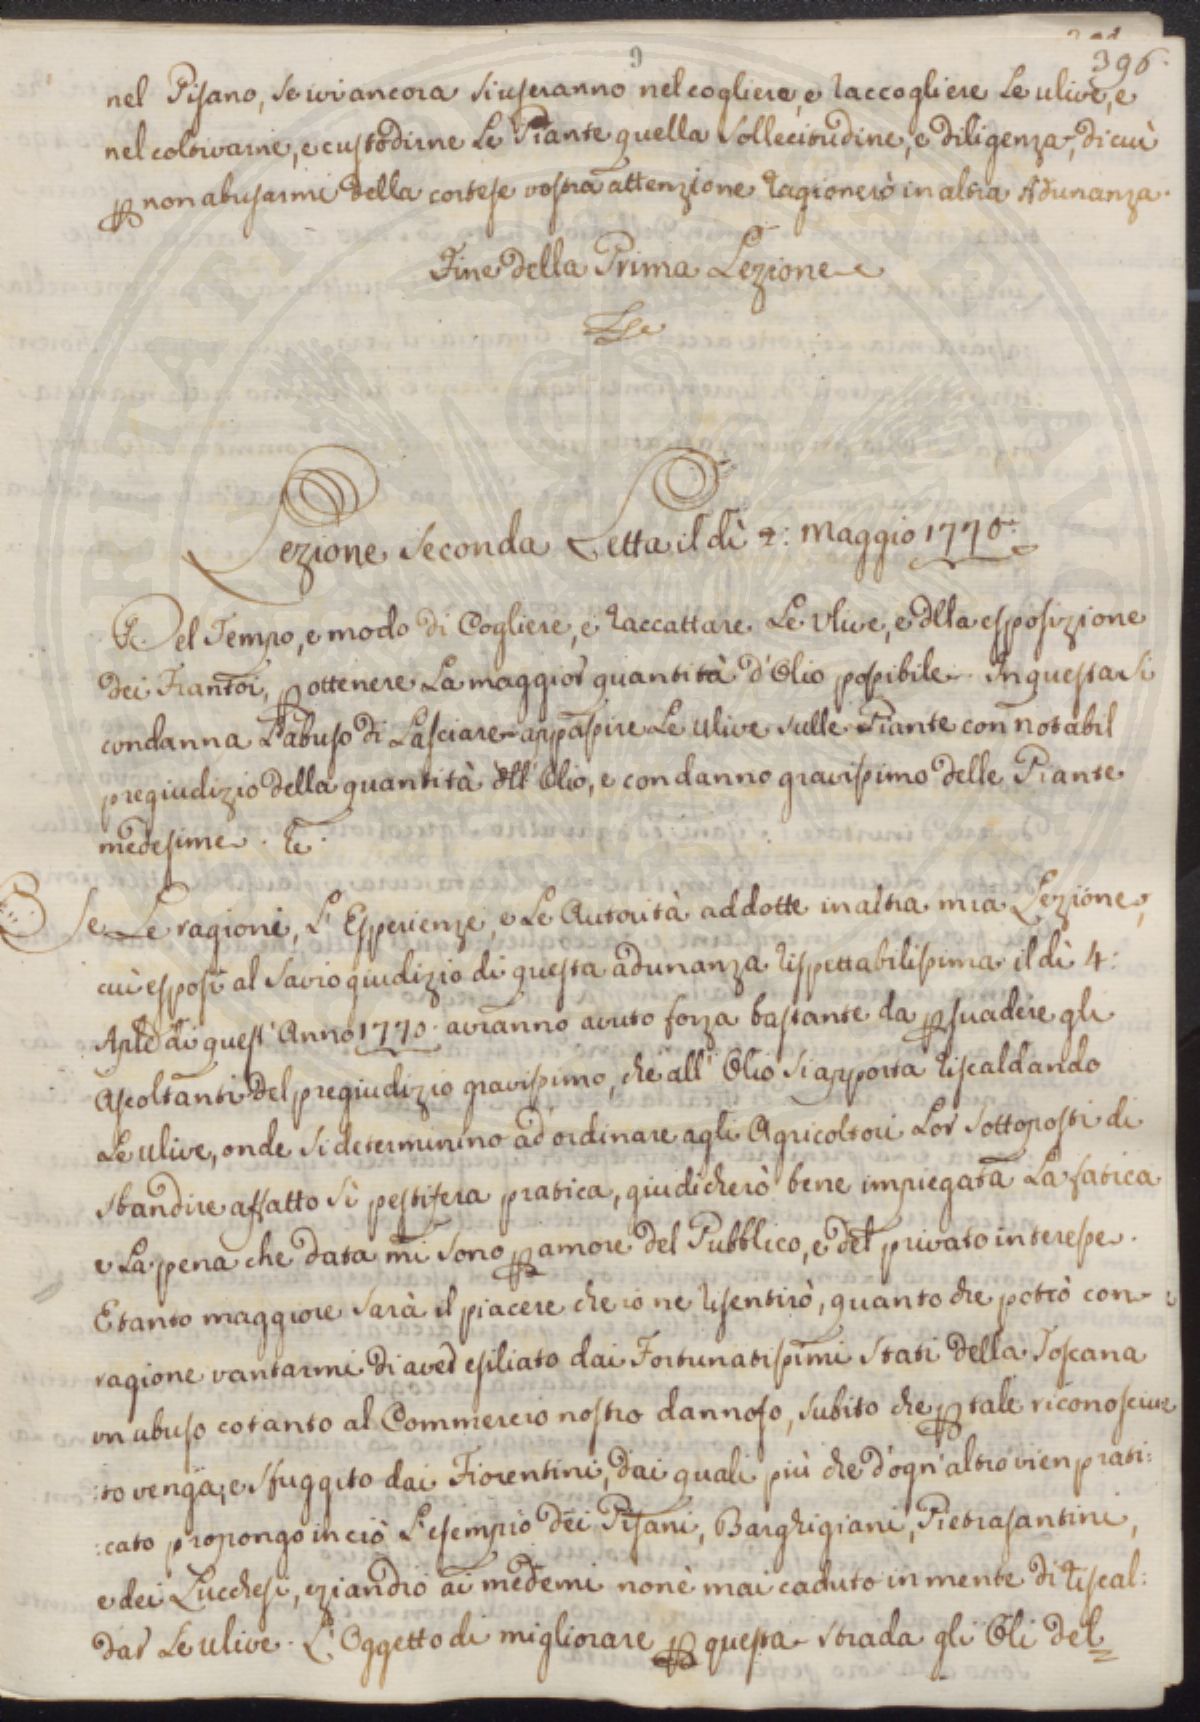 9
396.
nel Pisano, se ivi ancora si useranno nel cogliere, e raccogliere Le ulive, e
nel coltivarne, e custodirne Le Piante quella sollecitudine, e diligenza, di cui
p non abusarmi della cortese vostra attenzione ragionerò in altra Adunanza.
Fine della Prima Lezione
Lezione Seconda Letta il dì 2: Maggio 1770.
Del Tempo, e modo di Cogliere, e raccattare Le Ulive, e dlla esposizione
dei Frantoi, p ottenere La maggior quantità d'Olio possibile. In questa si
condanna L'abuso di Lasciare appassire Le Ulive sulle Piante con notabil
pregiudizio della quantità dll' Olio, e con danno gravissimo delle Piante
medesime.
Se Le ragioni, L'Esperienze, e Le Autorità addotte in altra mia Lezione,
cui esposi al savio giudizio di questa adunanza rispettabilissima il dì 4:
Aple di quest'Anno 1770. avranno avuto forza bastante da psuadere gli
Ascoltanti del pregiudizio gravissimo, che all'Olio si apporta riscaldando
Le ulive, onde si determinino ad ordinare agli Agricoltori Lor sottoposti di
sbandire affatto sì pestifera pratica, giudicherò bene impiegata La fatica
e La pena che data mi sono p amore del Pubblico, e del privato interesse.
E tanto maggiore sarà il piacere che io ne risentirò, quanto che potrò con
ragione vantarmi di aver esiliato dai Fortunatissimi Stati della Toscana
un abuso cotanto al Commercio nostro dannoso, subito che p tale riconosciu
:to venga, e sfuggito dai Fiorentini, dai quali più che d'ogn'altro vien prati:
:cato propongo in ciò L'esempio dei Pisani, Barghigiani, Pietrasantini,
e dei Lucchesi, eziandio ai medemi non è mai caduto in mente di riscal:
dar Le ulive. L'Oggetto di migliorare p questa strada gli Oli del